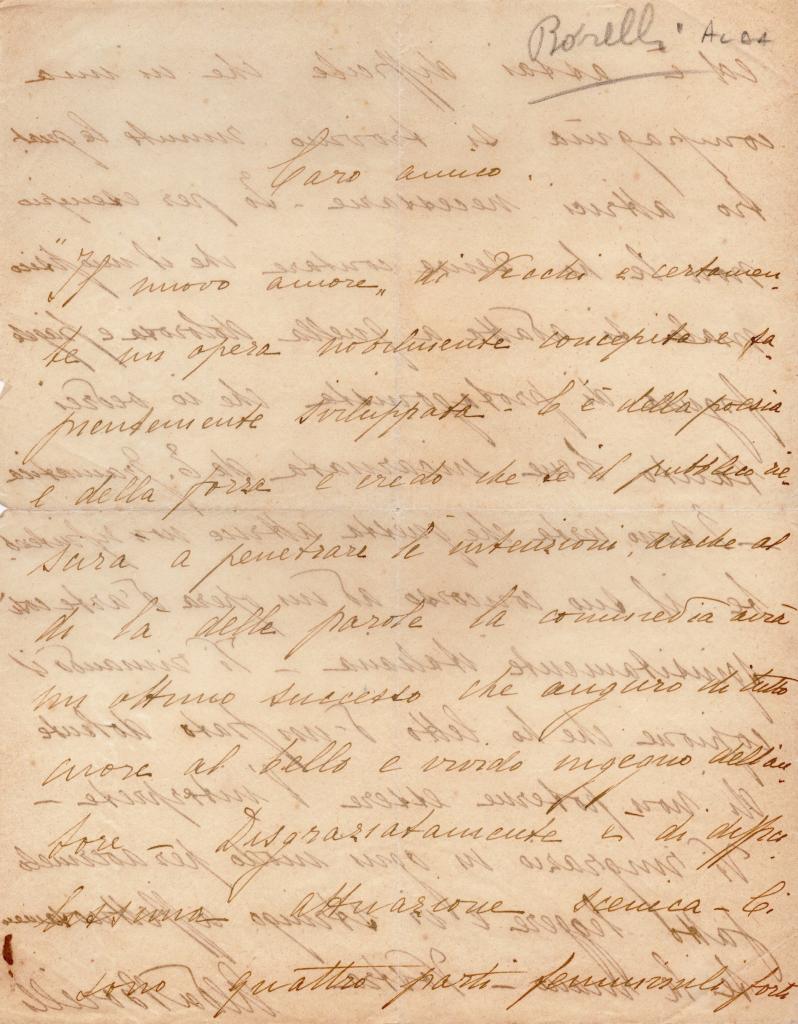 Borelli Alda
Caro amico.
"Il nuovo amore" di Vecchi è certamen-
te un opera nobilmente concepita e sa-
pientemente sviluppata - C'è della poesia
e della forza e credo che se il pubblico rie-
scirà a penetrare le intenzioni, anche al
di là delle parole la commedia avrà
un ottimo successo che auguro di tutto
cuore al bello e vivido ingegno dell'au-
tore - Disgraziatamente è di diffici-
lissima attuazione scenica - Ci
sono quattro parti femminili forti